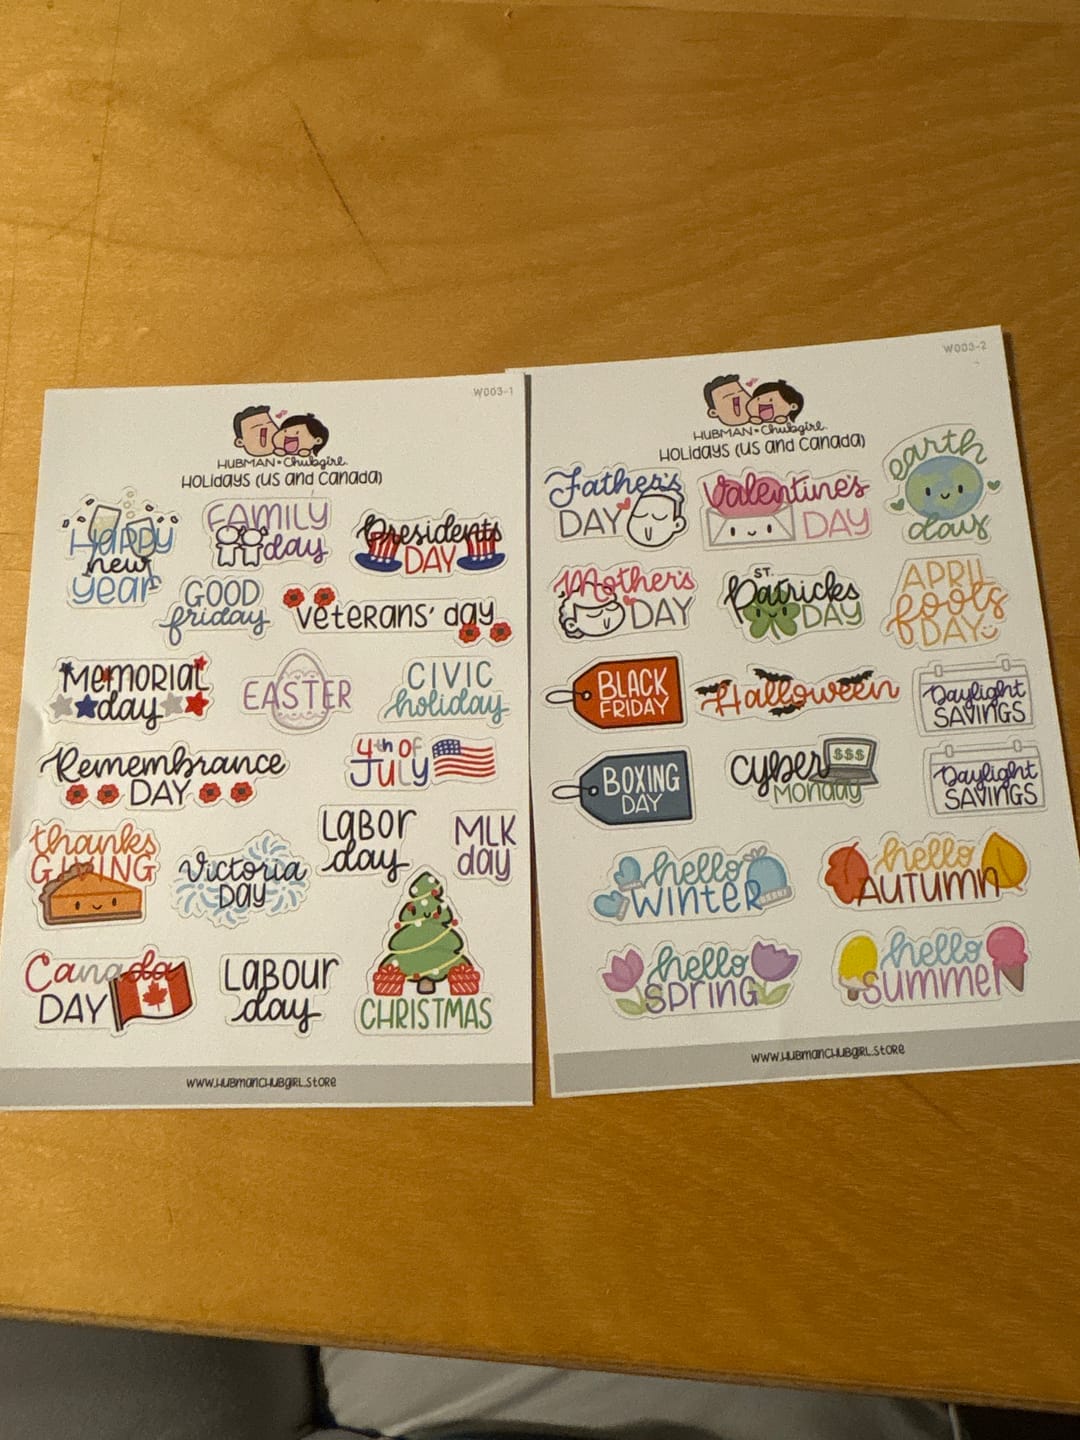 W003-1
HUBMAN • Chubgirl
HOLIDAYS (US and CANADA)
HAPPY
new
year
FAMILY
day
Presidents
DAY
GOOD
friday
Veterans' day
MEMORIAL
day
EASTER
CIVIC
holiday
Remembrance
DAY
4th OF
JULY
thanks
GIVING
Victoria
DAY
LABOR
day
MLK
day
Canada
DAY
LABOUR
day
CHRISTMAS
www.HUBMANCHUBGIRL.STORE
W003-2
HUBMAN • Chubgirl
HOLIDAYS (US and CANADA)
Father's
DAY
Valentine's
DAY
earth
day
Mother's
DAY
ST.
Patricks
DAY
APRIL
fools
DAY
BLACK
FRIDAY
Halloween
Daylight
SAVINGS
BOXING
DAY
cyber
$$$
MONDAY
Daylight
SAVINGS
hello
WINTER
hello
AUTUMN
hello
SPRING
hello
summer
www.HUBMANCHUBGIRL.STORE